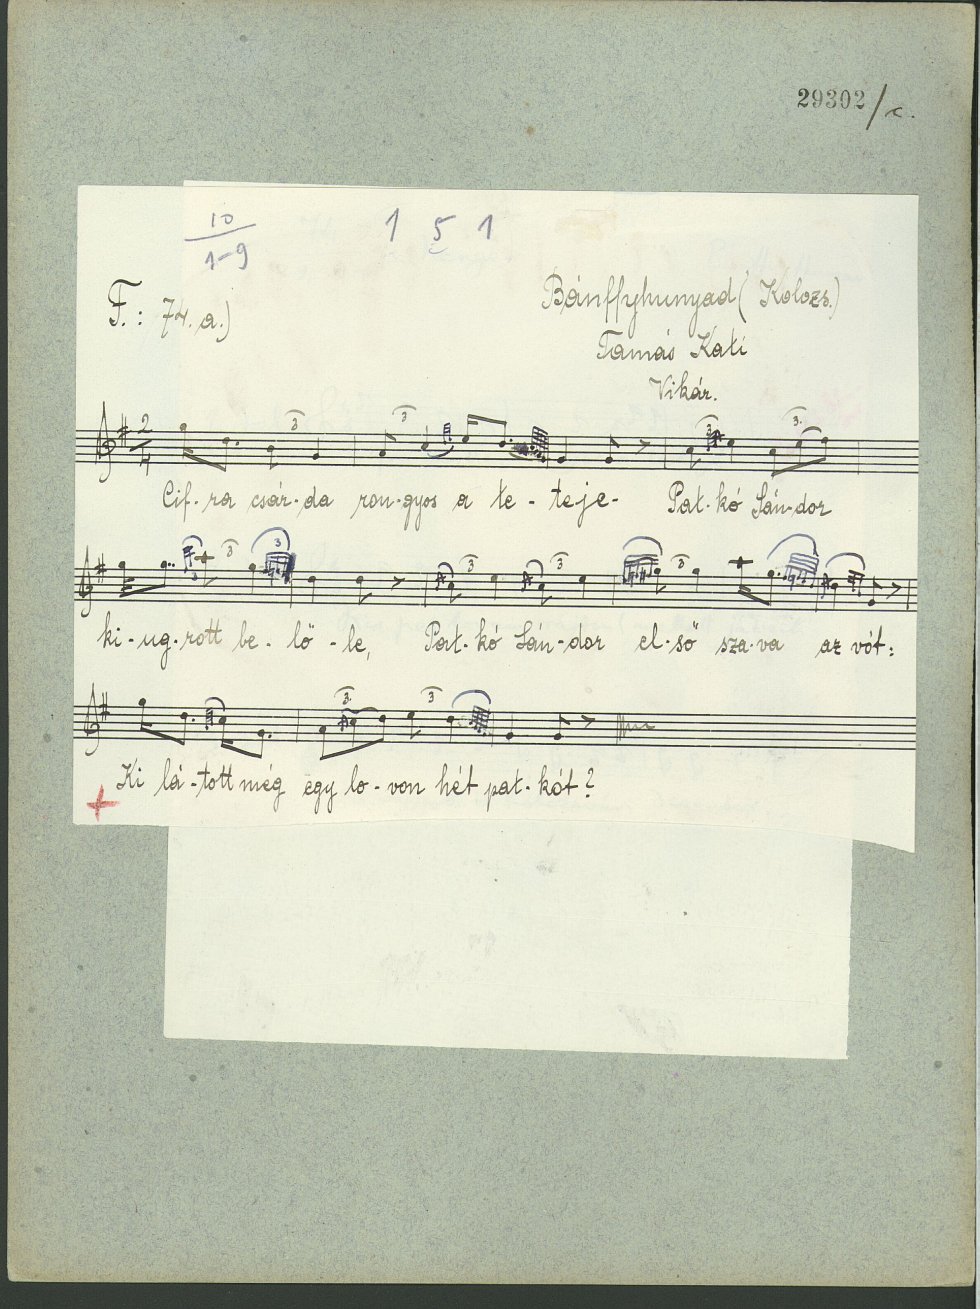 29302/c.
10
1-9
1 5 1
F.: 74. a.)
Bánffyhunyad (Kolozs.)
Tamás Kati
Vikár.
2
4
3 3 3 3.
Cif-ra csár-da ron-gyos a te-te-je- Pat-kó Sán-dor
3 3 3 3 3 3
ki-ug-rott be-lő-le, Pat-kó Sán-dor el-ső sza-va az vót:
3. 3
Ki lá-tott még egy lo-von hét pat-kót?